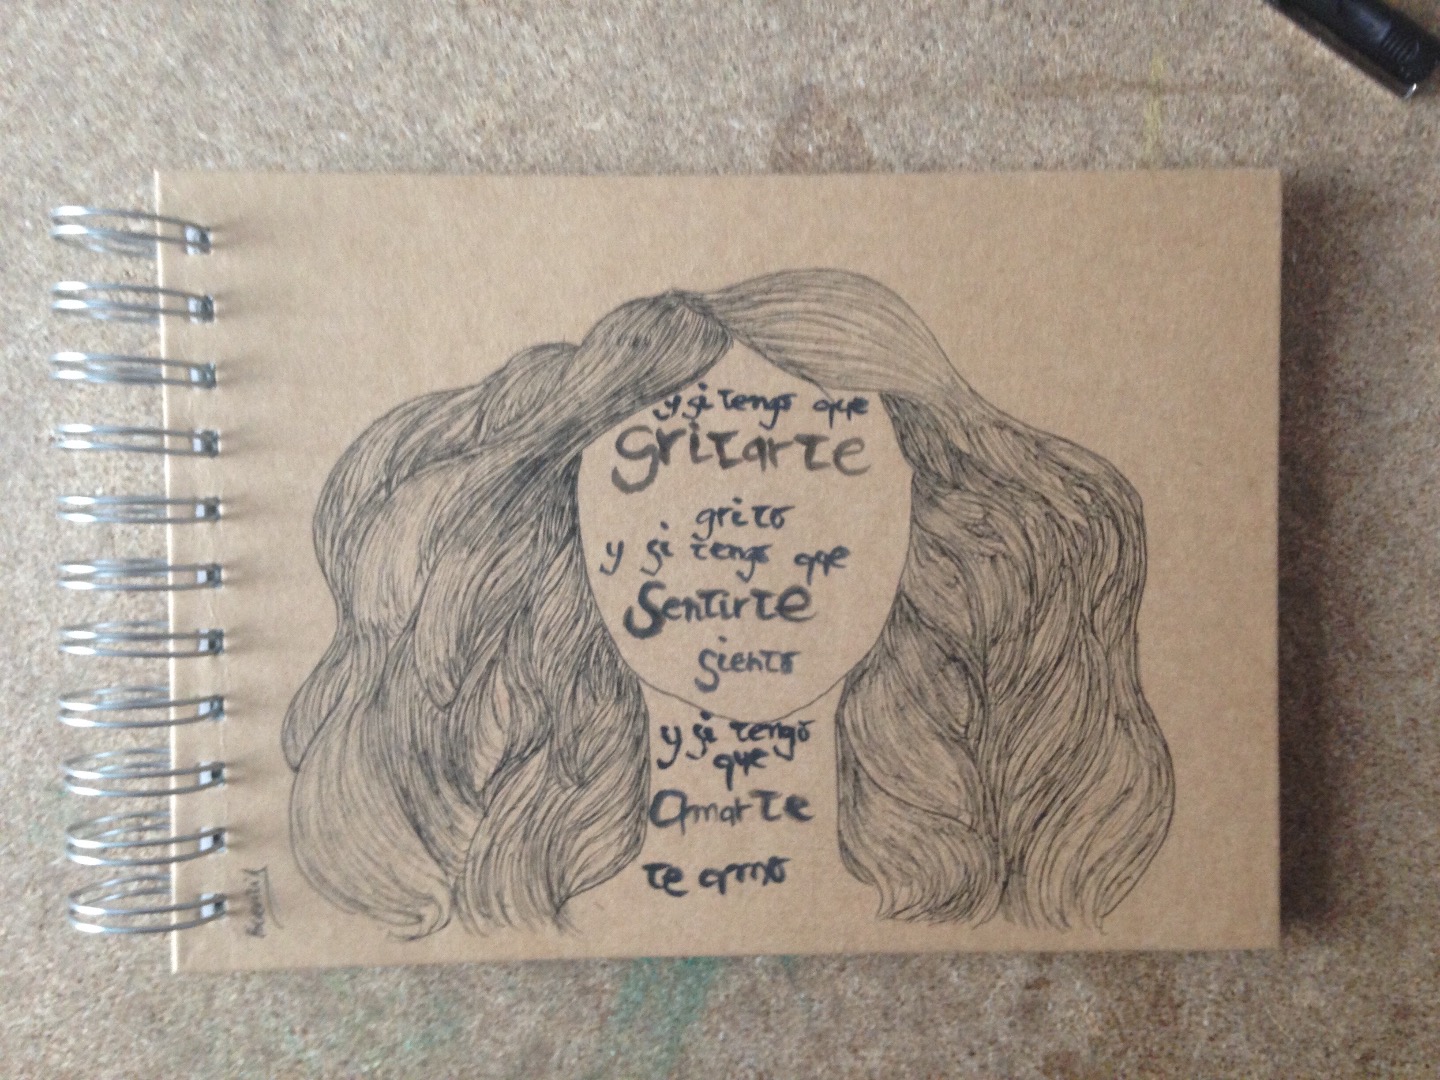 y si tengo que
gritarte
grito
y si tengo que
Sentirte
siento
y si tengo
que
amarte
te amo